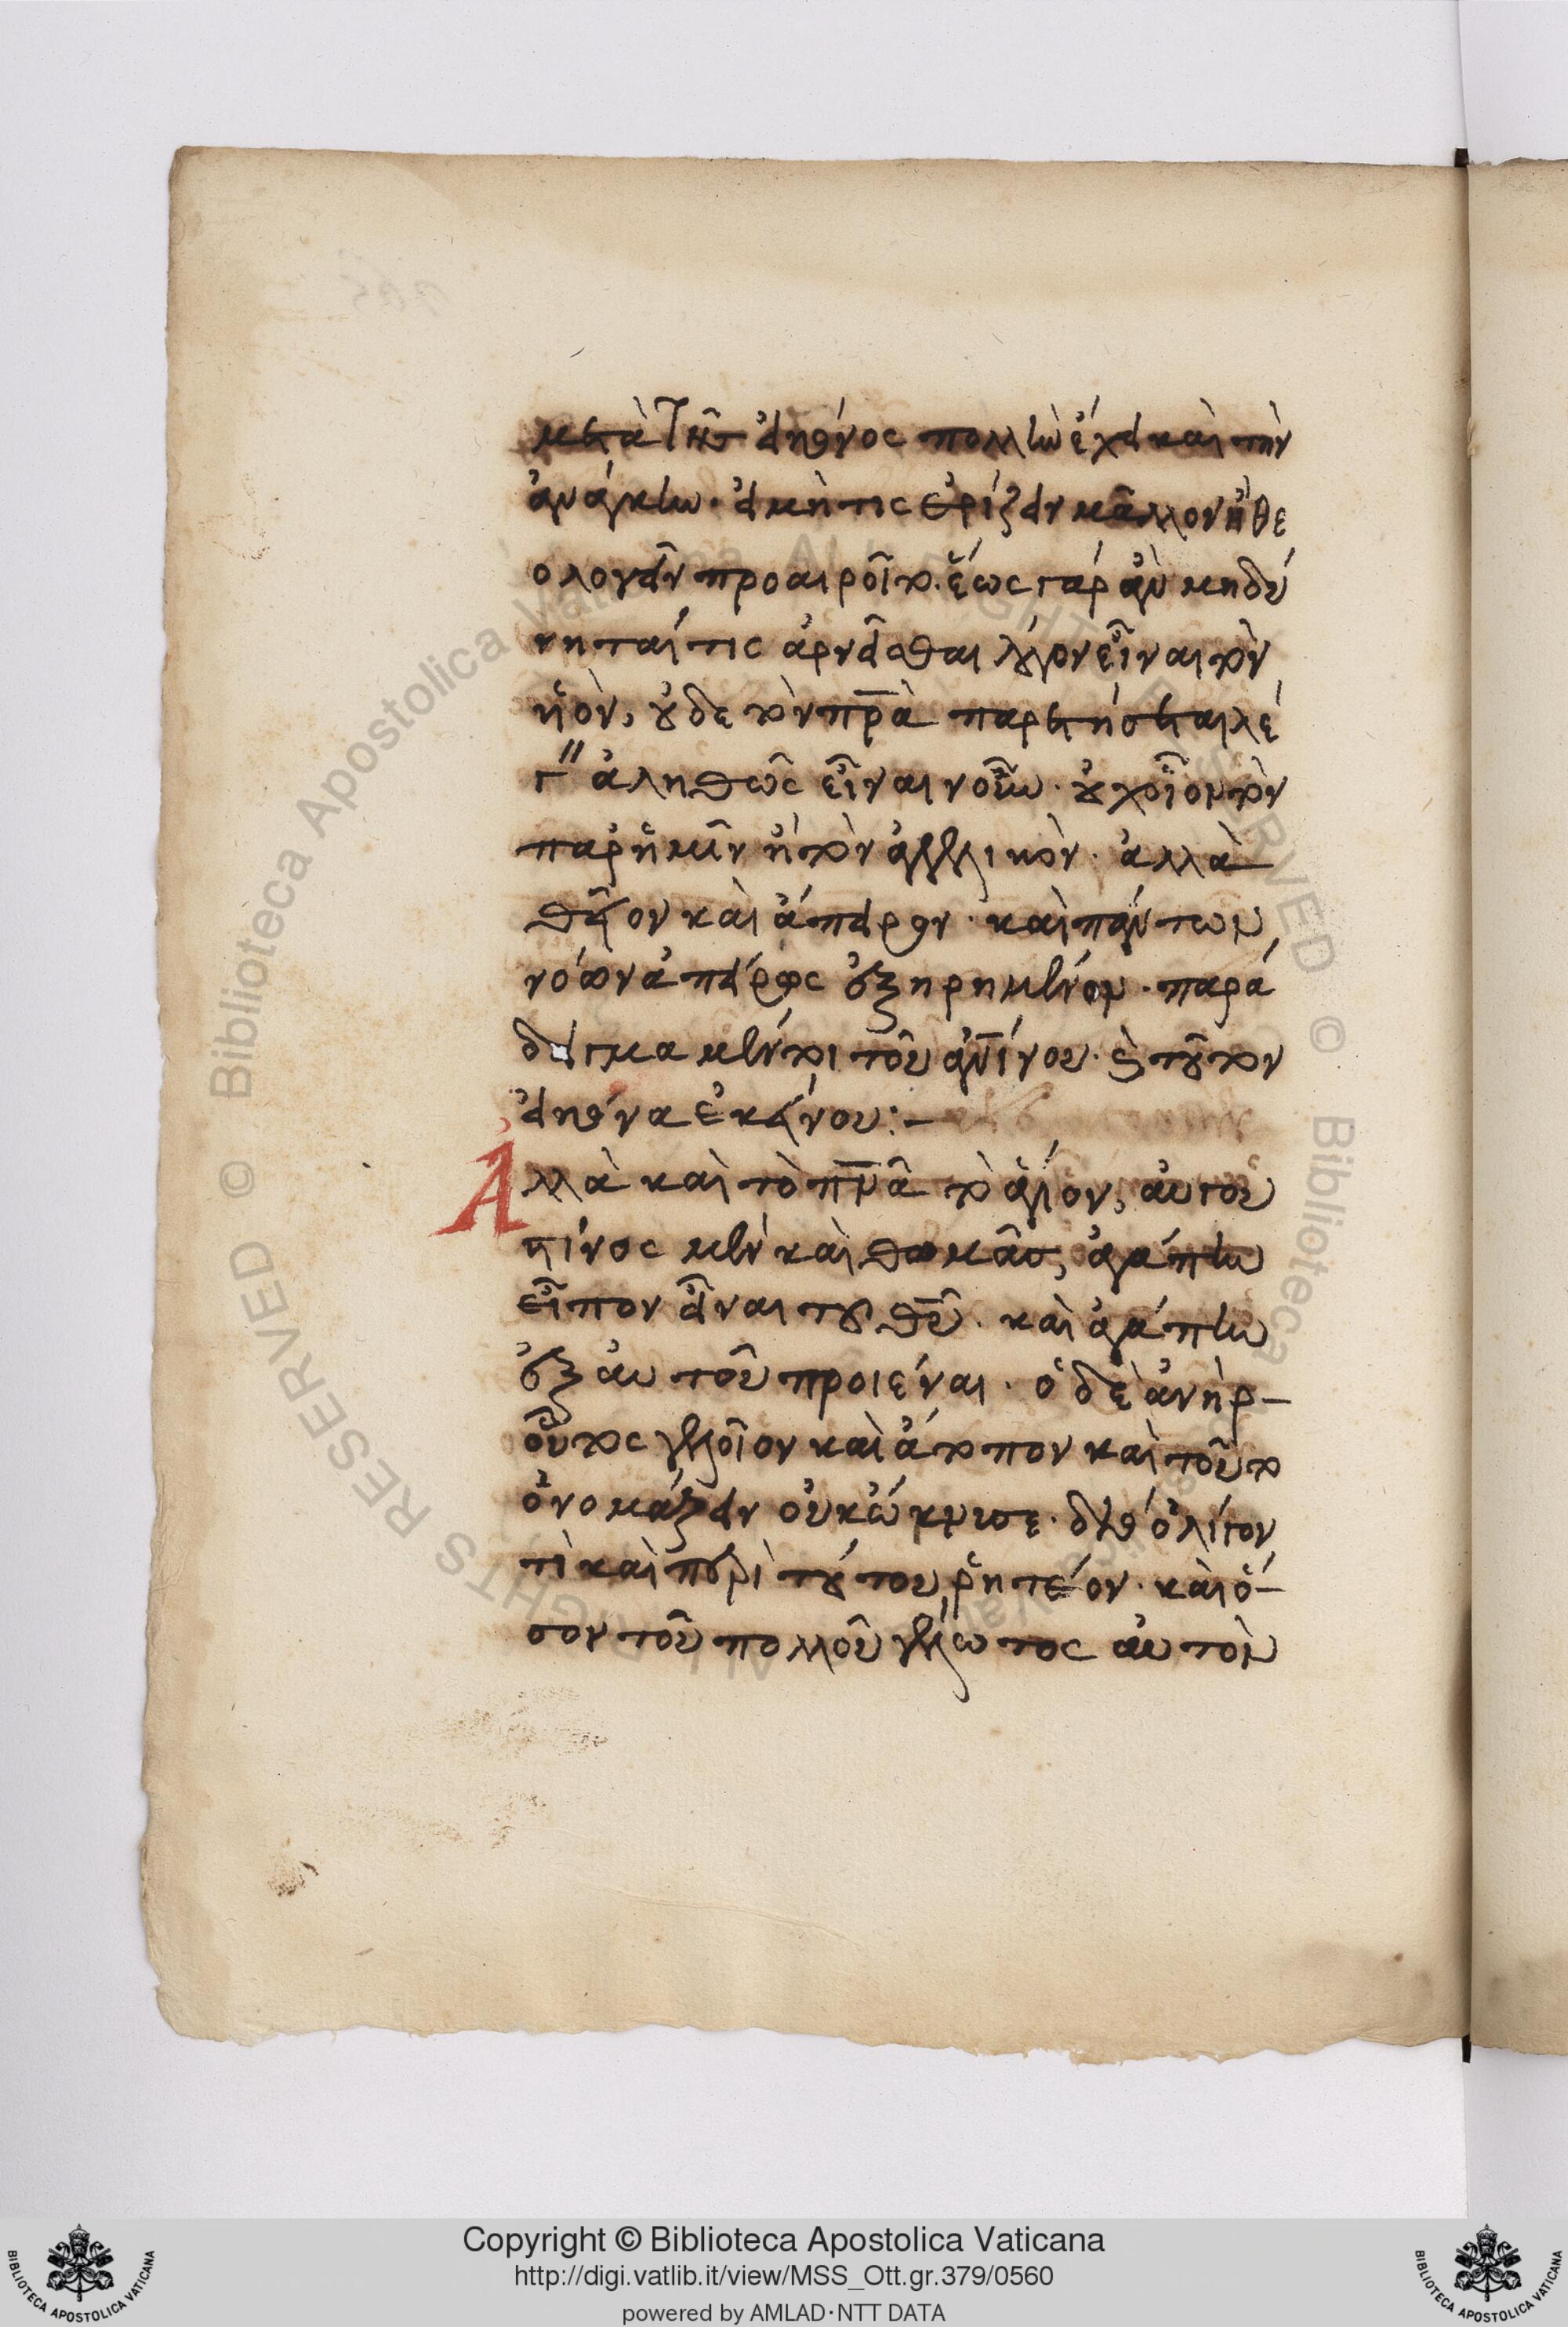 μετὰ τῶν εἰκότος πολλὴν ἔχει καὶ τὴν
ἀνάγκην· εἰ μή τις ἐρίζειν μᾶλλον ἢ θε
ολογεῖν προαιροῖτο. ἕως γὰρ ἂν μὴ δύ
νηταί τις ἀρνεῖσθαι λόγον εἶναι τὸν
υἱὸν, οὐδὲ τὸν πρ̅α̅ παρεκτήσεται λέ
γ" ἀληθῶς εἶναι νοῦν· οὐχ οἷον τὸν
παρ' ἡμῖν ἢ τὸν ἀγγελικὸν· ἀλλὰ
θεῖον καὶ ἄπειρον· καὶ πάντων
νόων ἀπείρως ἐξηρημένον· παρά
δειγμα μέντοι τοῦ αν̅ί̅νου· καὶ τοῦτον
εἰκόνα ἐκείνου:–
Ἀλλὰ καὶ τὸ πν̅α̅ τὸ ἅγιον, αὐγου
στίνος μὲν καὶ θωμᾶς, ἀγάπην
εἶπον εἶναι τοῦ θυ̅· καὶ ἀγάπην
ἐξ αὐτοῦ προιέναι· ὁ δὲ ἀνὴρ–
οὗτος γελοῖον καὶ ἄτοπον καὶ τοῦτο
ὀνομάζειν οὐκ ὤκνισε· διὸ ὀλίγον
τὶ καὶ περὶ τούτου ῥητέον· καὶ ὅ–
σον τοῦ πολλοῦ γέλωτος αὐτὸν
Copyright © Biblioteca Apostolica Vaticana
http://digi.vatlib.it/view/MSS_Ott.gr.379/0560
powered by AMLAD·NTT DATA
BIBLIOTECA APOSTOLICA VATICANA
BIBLIOTECA APOSTOLICA VATICANA